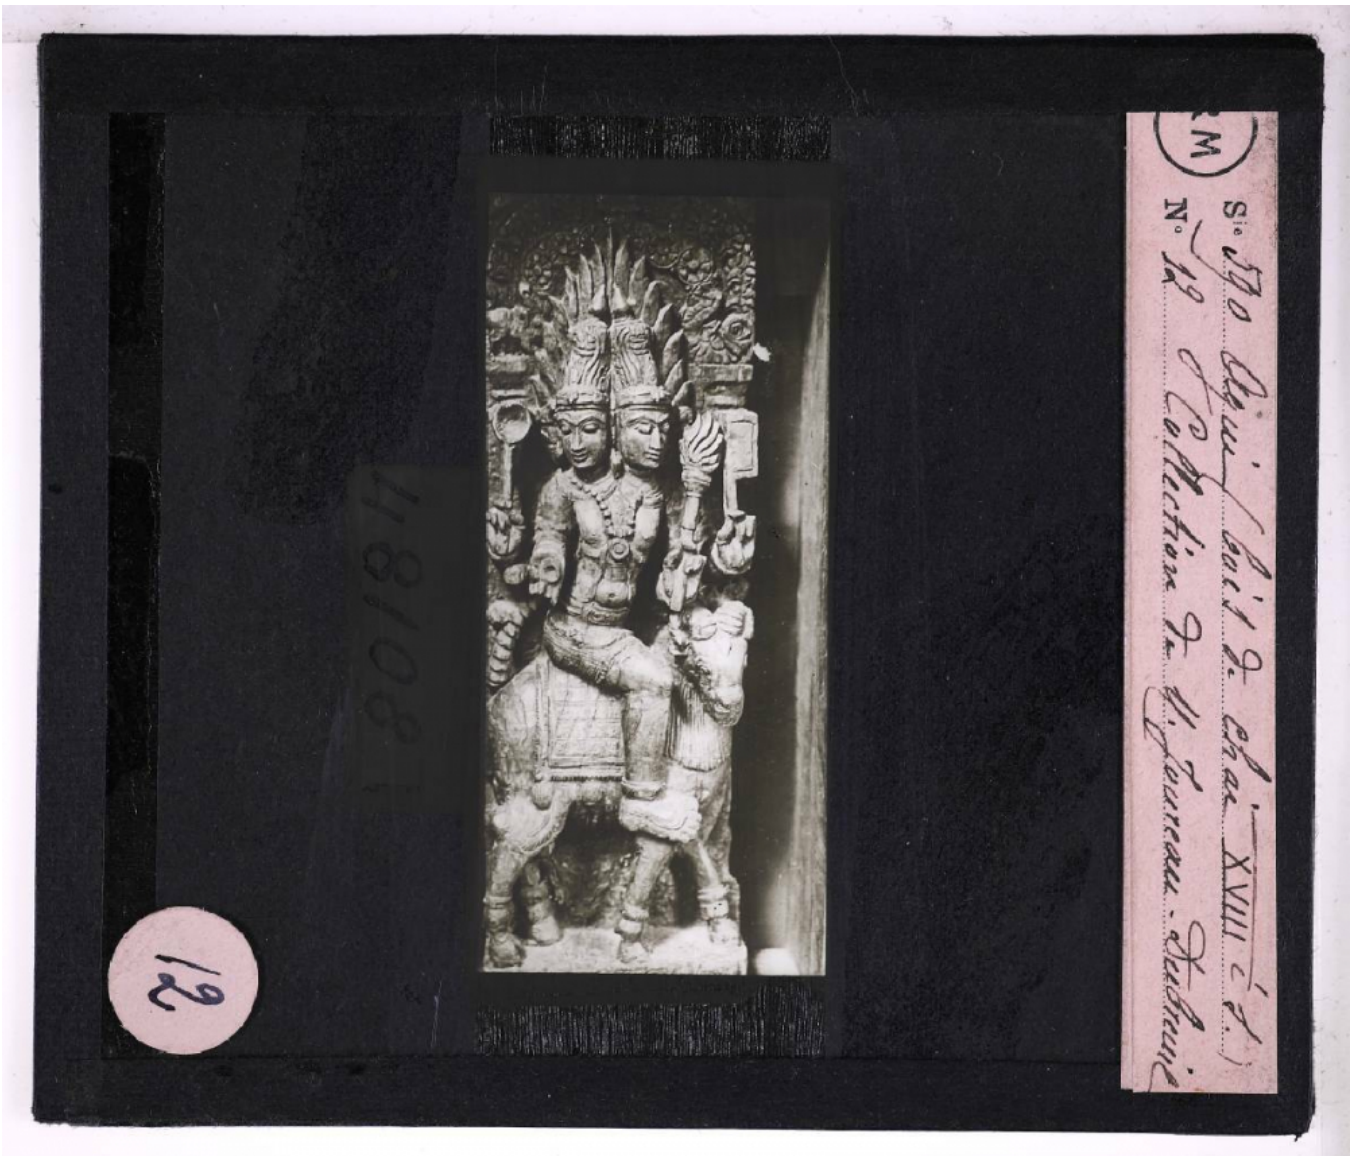 RM
Sie 590 Agni (bois de char XVIII e s.)
No 12 Collection de M. Jouveau-Dubreuil
12
80184